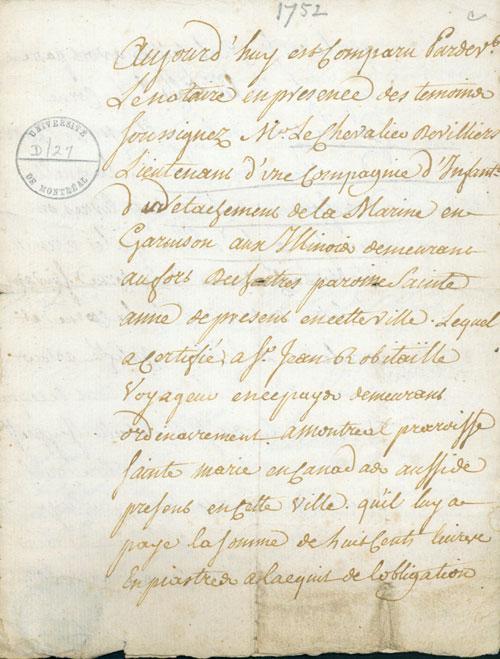 1752
c
UNIVERSITÉ
D/27
DE MONTRÉAL
Aujourd'huy est Comparu Pardev.
Le notaire en presence des temoins
soussignez Mr. Le Chevalier Devilliers
Lieutenant d'une Compagnie d'Infant.
du detachement de la Marine en
Garnison aux Illinois demeurant
au fort Dechartres paroisse Sainte
anne de present en cette ville. Lequel
a Certifié a Sr. Jean Robitaille
Voyageur en ce pays demeurant
ordinairement a montreal praroisse
sainte marie en Canadas aussi de
present en Cette ville. qu'il luy a
payé la somme de huit Cents livres
En piastres a lacquit de lobligation